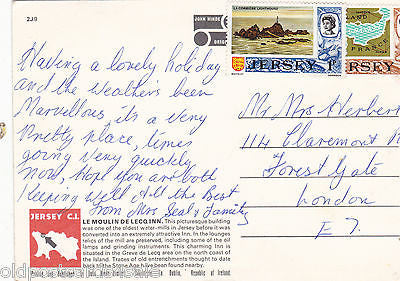 2J9
JOHN HINDE
ORIGINAL
LA CORBIERE LIGHTHOUSE
JERSEY 1
JERSEY
FRANCE
Having a lovely holiday
and the weathers been
Marvellous, its a very
Pretty place, times
going very quickly
now, Hope you are both
keeping well All the Best
from Mrs Seal & Family
Mr Mrs A Herbert
114 Claremont R
Forest Gate
London
E.7.
JERSEY C.I.
LE MOULIN DE LECQ INN. This picturesque building
was one of the oldest water-mills in Jersey before it was
converted into an extremely attractive Inn. In the lounges
relics of the mill are preserved, including some of the oil
lamps and grinding instruments. This charming Inn is
situated in the Greve de Lecq area on the north coast of
the Island. Traces of old entrenchments thought to date
back to the Stone Age have been found nearby.
Dublin, Republic of Ireland